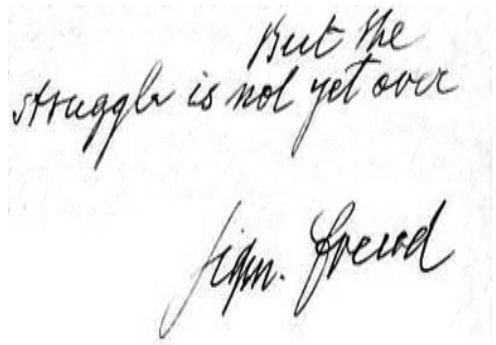 But the
struggle is not yet over
Sigm. Freud